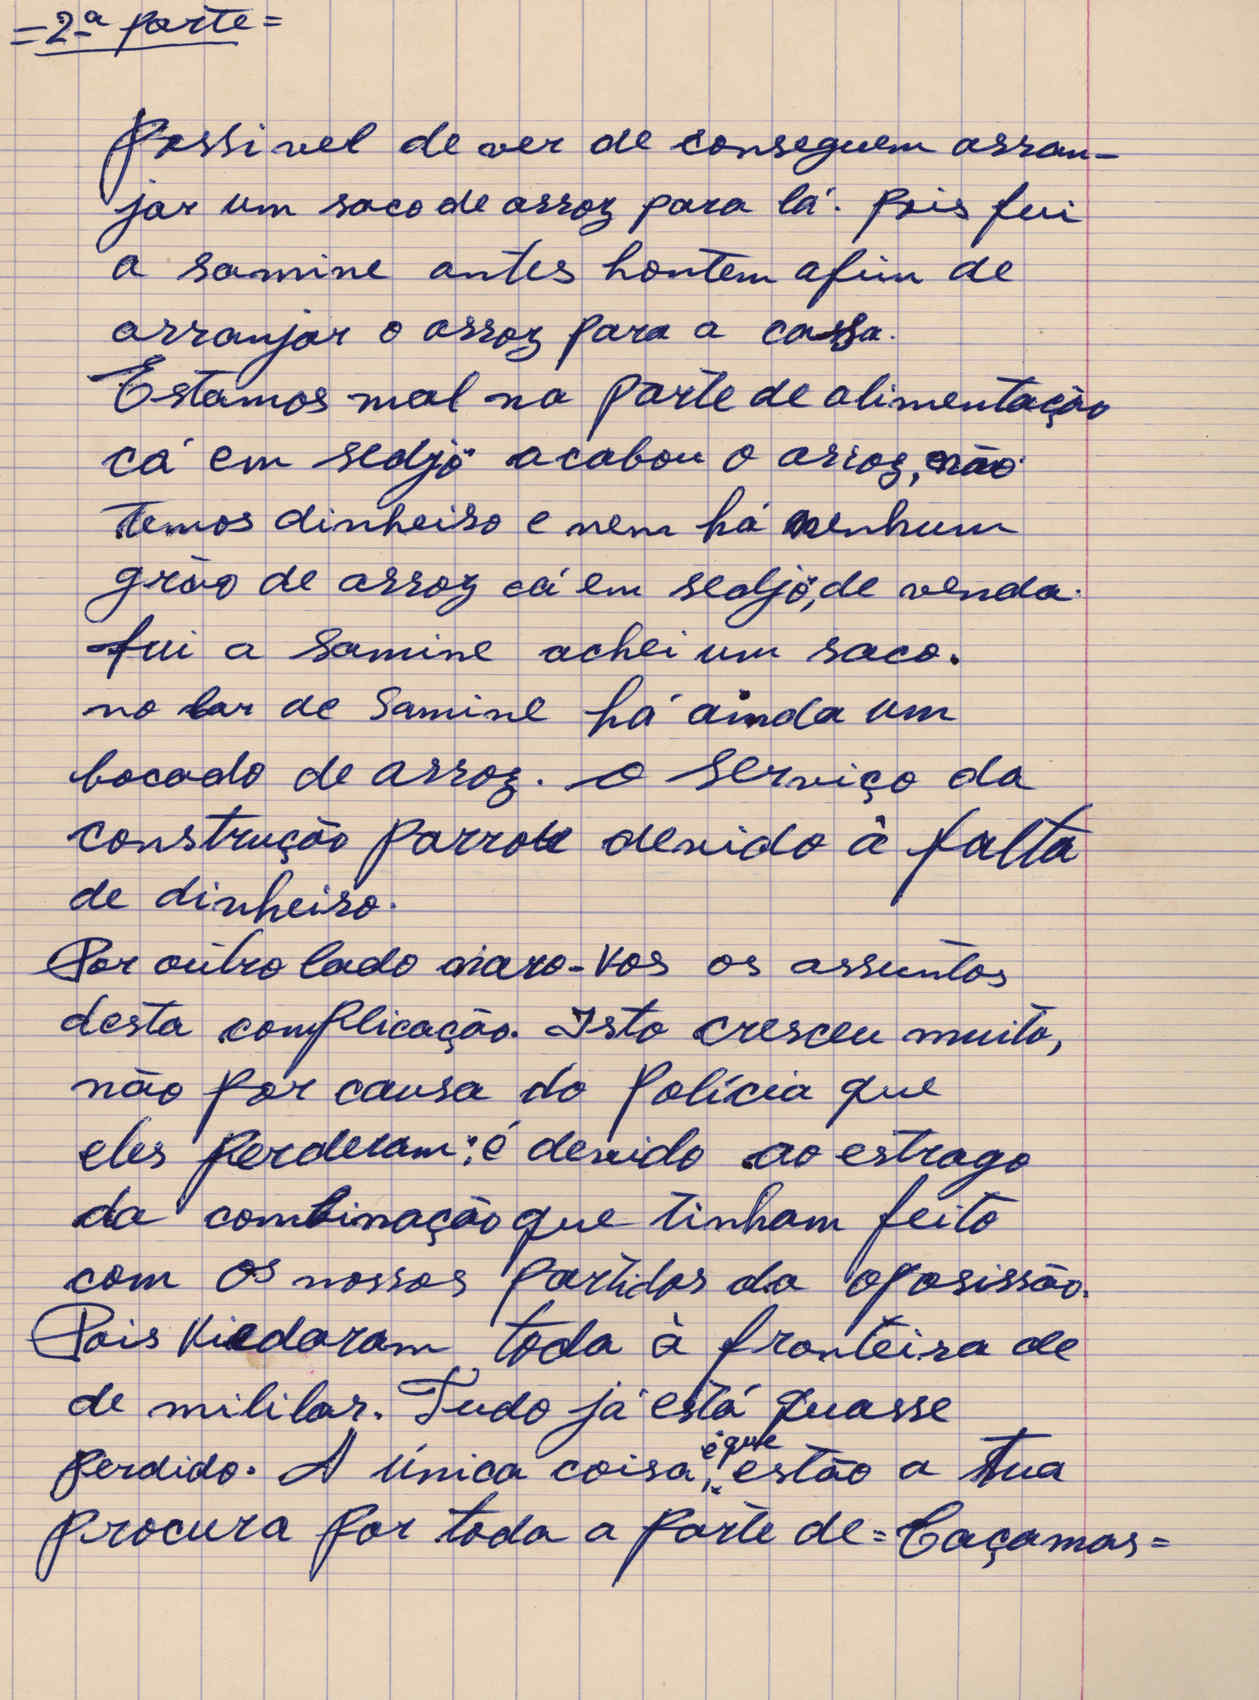 =2ª parte=
Possivel de ver de conseguem arran-
jar um saco de arroz para lá. Pois fui
a samine antes hontem afim de
arranjar o arroz para a cassa.
Estamos mal na parte de alimentação
cá em sedjo acabou o arroz, não
temos dinheiro e nem há nenhum
grão de arroz cá em sedjo, de venda.
fui a Samine achei um saco.
no lar de Samine há ainda um
bocado de arroz. O serviço da
construção parrou devido à falta
de dinheiro.
Por outro lado narro-vos os assuntos
desta complicação. Isto cresceu muito,
não por causa do Polícia que
eles perderam; é devido ao estrago
da combinação que tinham feito
com os nossos partidos da oposissão.
Pois viedaram toda à fronteira de
de mililar. Tudo já está quasse
perdido. A única coisa, é que estão a tua
procura por toda a parte de =Caçamas=